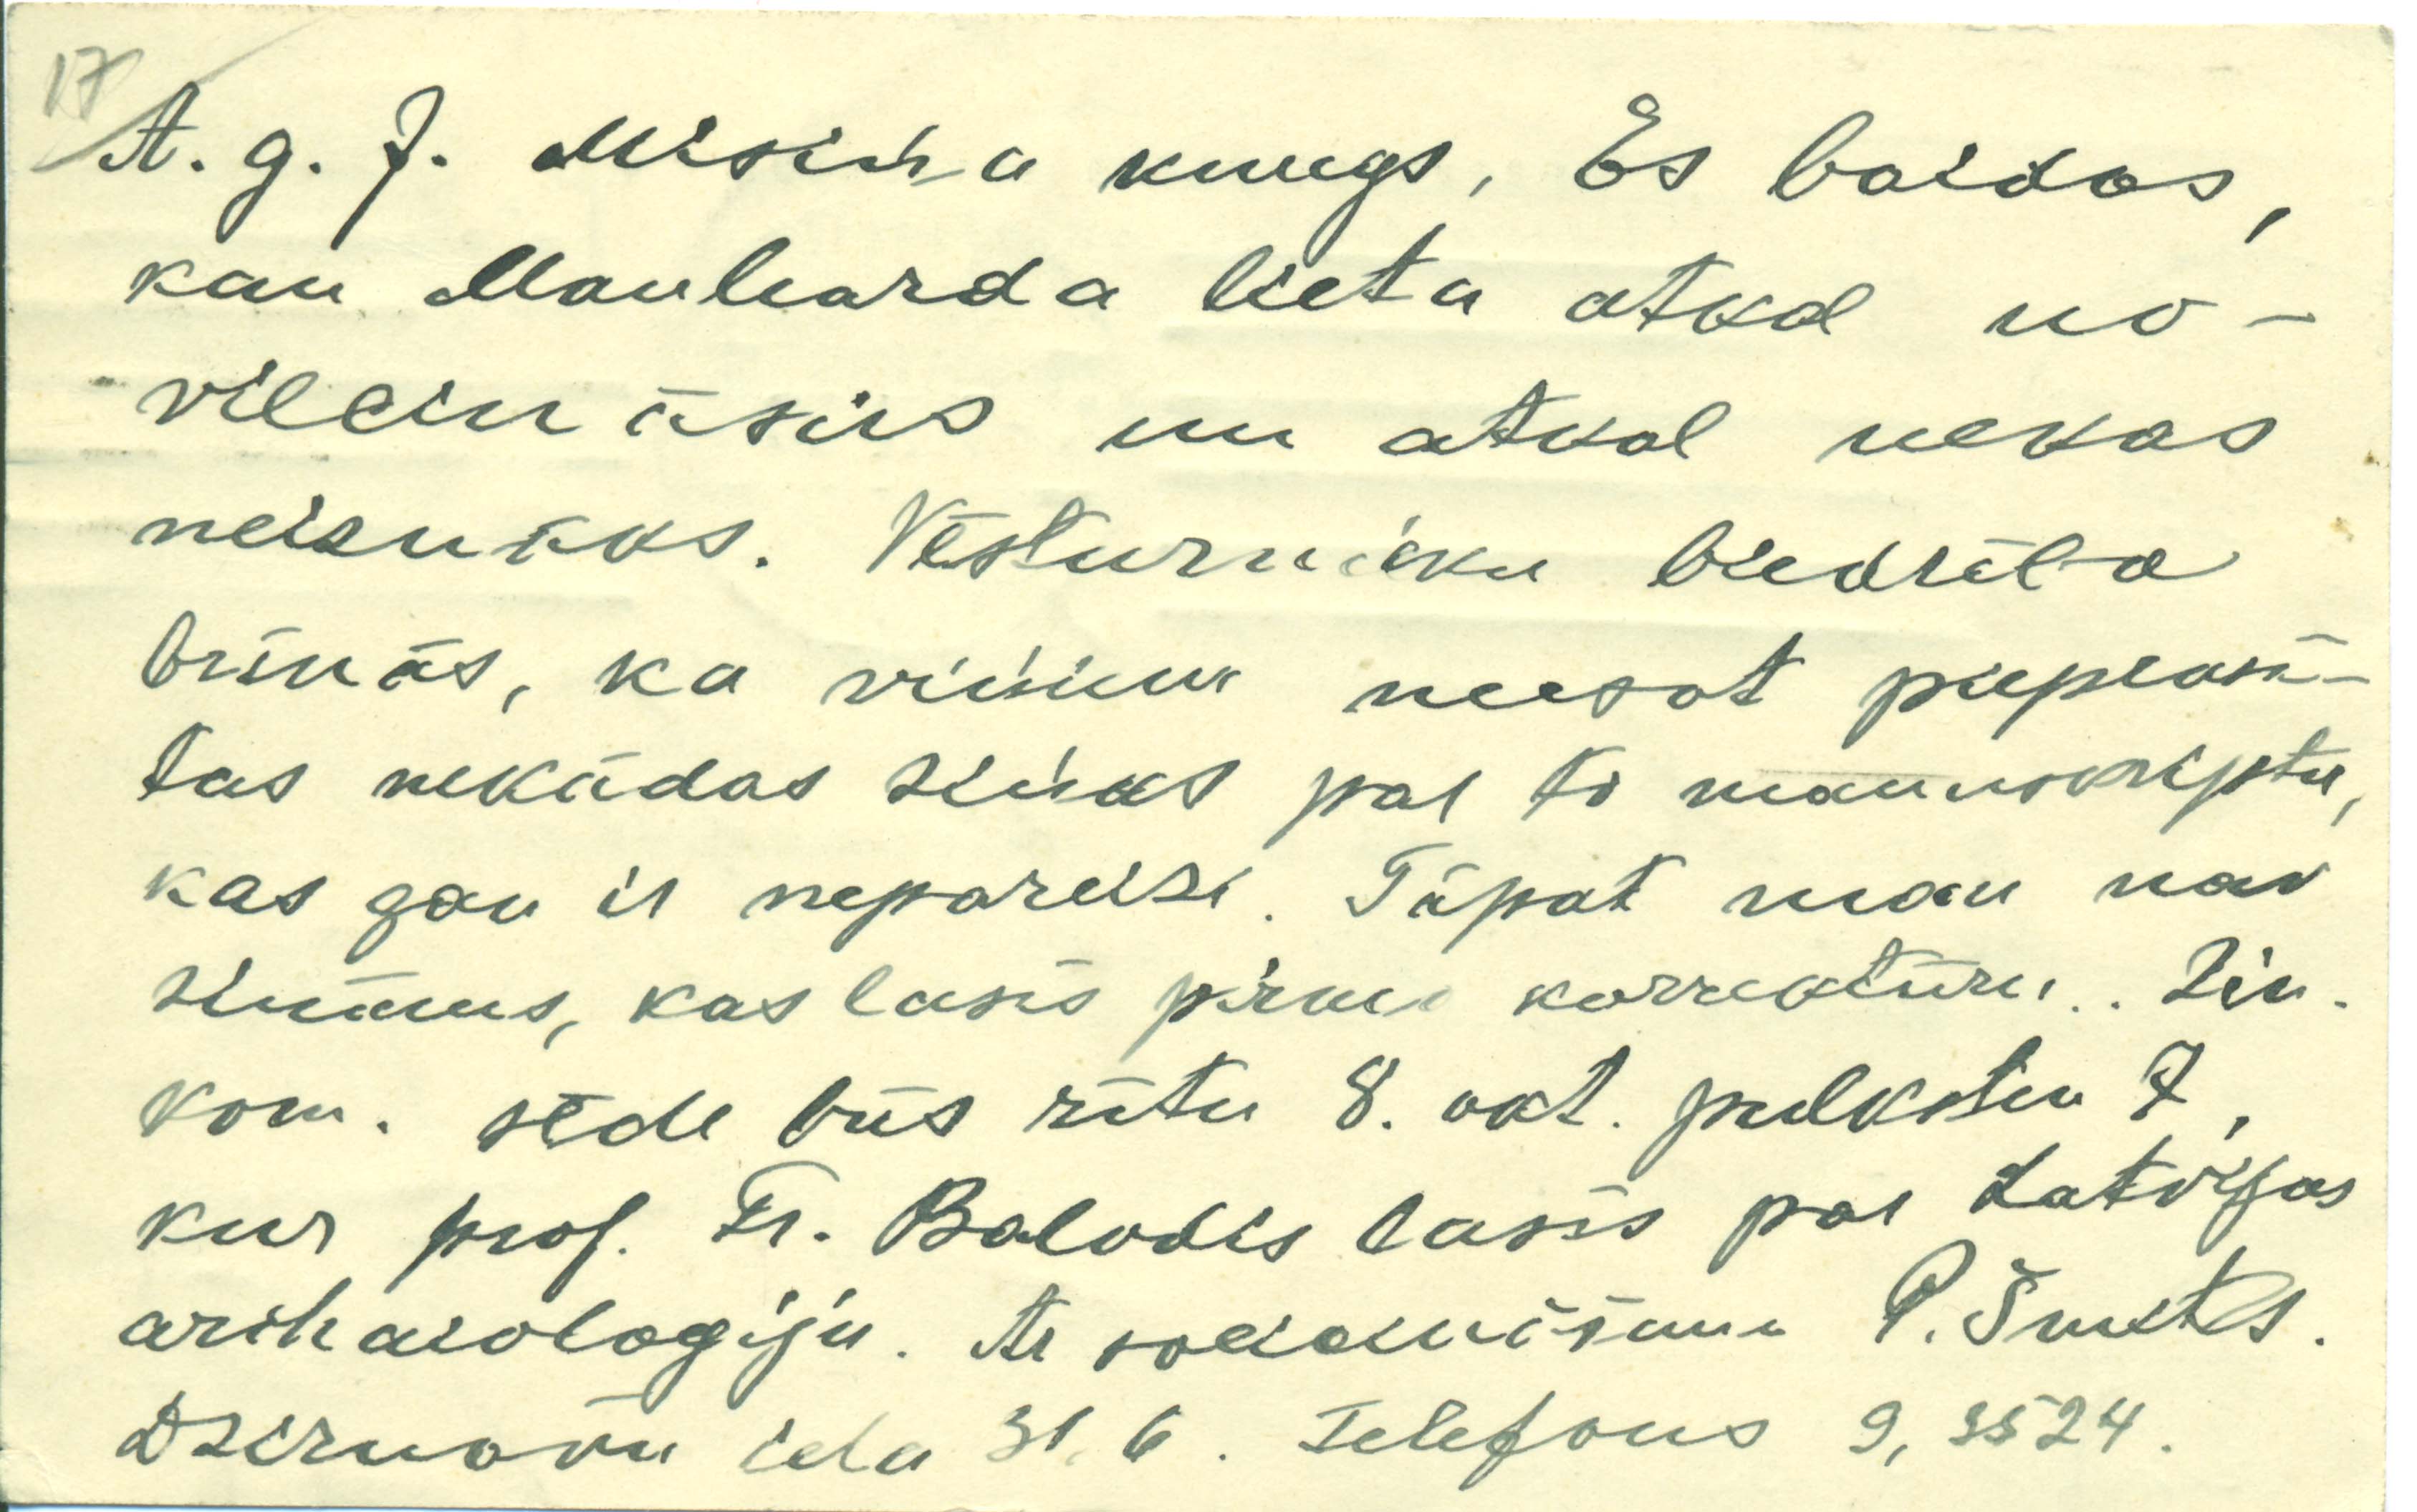 17
A. g. J. Misiņa kungs, Es baidos,
kau Manharda lieta atkal no-
vilcināsies un atkal nekas
neiznāks. Vēsturnieku biedrība
brīnās, ka viņiem neesot pieprasī-
tas nekādas ziņas par to manuskriptu,
kas gan ir nepareizi. Tāpat man nav
zināms, kas lasīs pirmo korrektūru.. Zin.
kom. sēde būs rītu 8. okt. pulksten 7,
kur prof. Fr. Balodis lasīs par Latvijas
archaioloģiju. Ar sveicināšanu P. Šmits.
Dzirnavu iela 31. 6. Telefons 9, 3524.